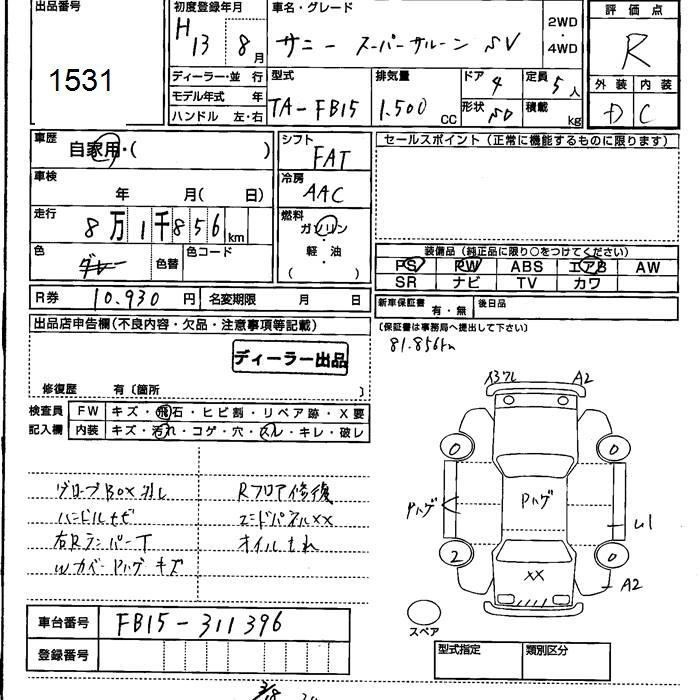 出品番号
1531
初度登録年月
H 13 8月
車名・グレード
サニー スーパーサルーン SV
2WD
・
4WD
評価点
R
外装 内装
D C
ディーラー・並行
モデル年式 年
ハンドル 左・右
型式
TA-FB15
排気量
1.500 cc
ドア 4
形状 SD
定員 5人
積載 kg
車歴
自家用・( )
車検
年 月( 日)
走行
8万1千856km
色
グレー
色替
色コード
シフト
FAT
冷房
AAC
燃料
ガソリン
・
軽・油
( )
セールスポイント(正常に機能するものに限ります)
装備品(純正品に限り○をつけてください)
PS PW ABS エアB AW
SR ナビ TV カワ
R券 10.930円
名変期限 月 日
新車保証書 有・無
後日品
(保証書は事務局へ提出して下さい)
81.856km
出品店申告欄(不良内容・欠品・注意事項等記載)
ディーラー出品
修復歴 有〔箇所 〕
検査員
記入欄
FW キズ・飛石・ヒビ割・リペア跡・X要
内装 キズ・汚れ・コゲ・穴・スレ・キレ・破レ
グローブBOX
ハンドル
Rフロア修復
エンドパネルXX
オイルもれ
Wカバー Pハゲ キズ
A2
0 0
Pハゲ
Pハゲ
2 0
XX
A2
スペア
車台番号 FB15-311396
登録番号
型式指定
類別区分